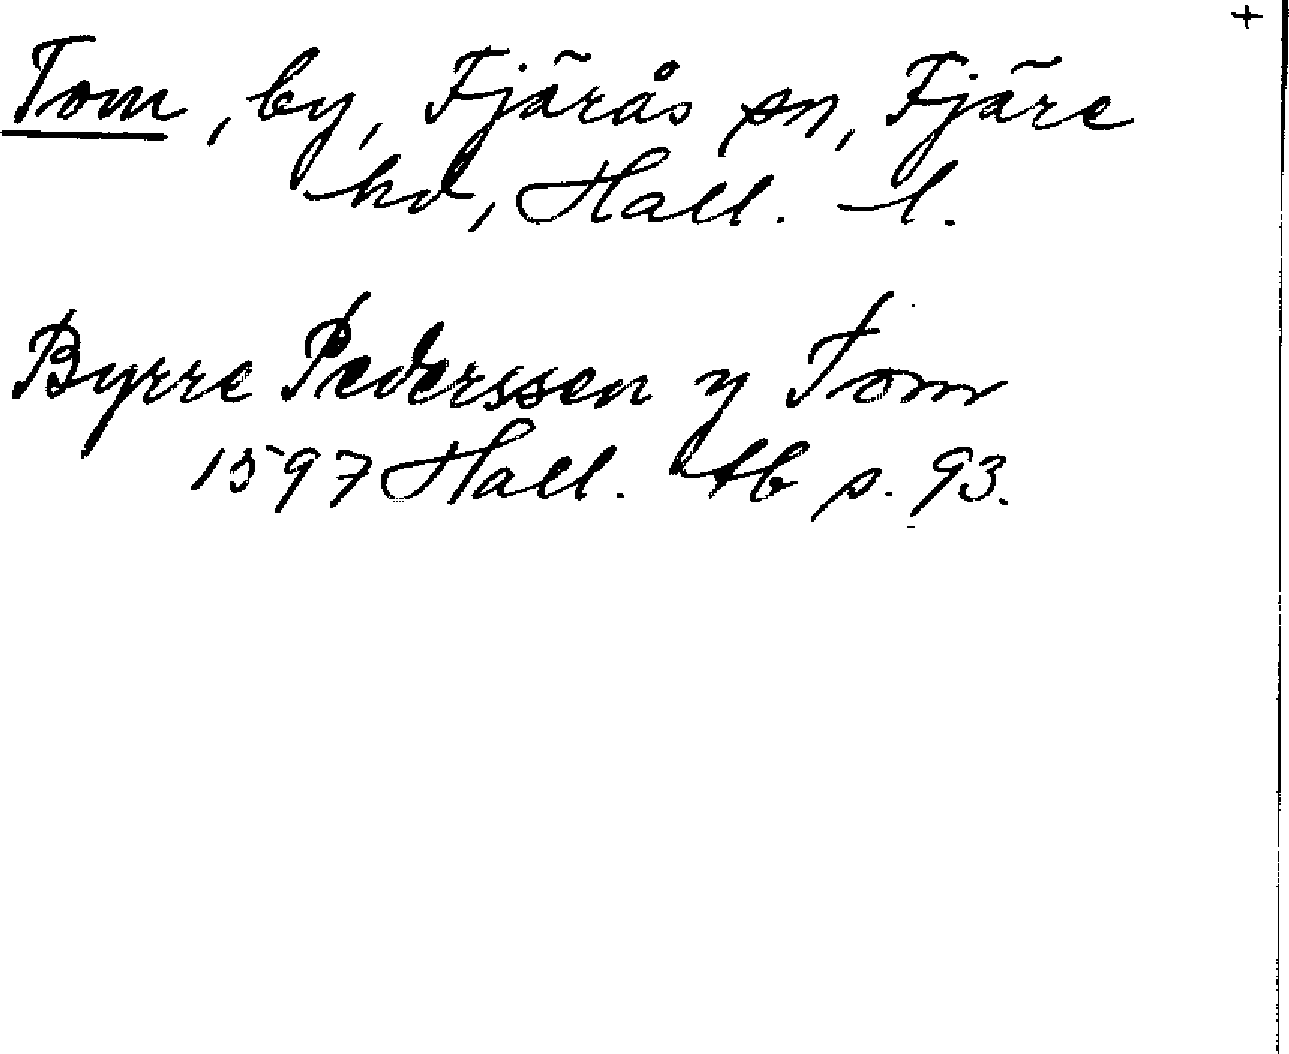 +
Tom, by, Fjärås sn, Fjäre
hd, Hall. l.
Byrre Pederssen y Tom
1597 Hall. tb s. 93.